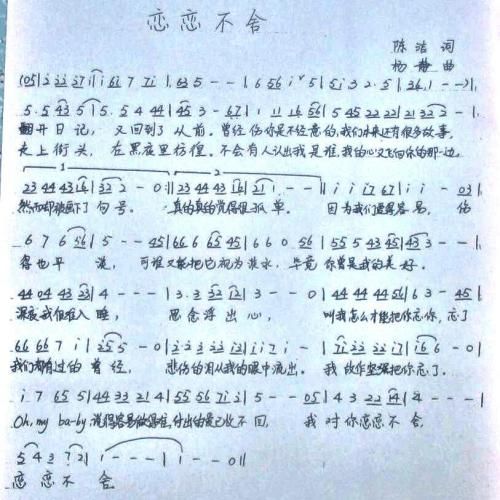 恋恋不舍
陈洁 词
杨静 曲
(05|2 22 27|i i 61 7 7i|63 5 - -|6 56 i 5|5 i 3 2·5|2 6 1 - -)|
5·5 43 5|5·5 4 44|45 3 - 67|1 11 16 56|5 45 22 22|21 32 2 -|
翻开日记, 又回到了从前。曾经伤你是不经意的,我们本来还有很多故事,
走上街头, 在黑夜里彷徨。不会有人认出我是谁,我的心又飞向你的那一边。
23 44 43 16|32 2 - 0:‖23 44 43 16|21 1 - -‖i i i7 67|i i - 03|
然而却被画下了句号。 真的真的觉得很孤单。 因为我们 容易, 伤
6 7 6 56|5 - - 45|66 6 65 45|6 6 0 56|55 5 43 45|43 3 - -|
得也平淡, 可谁又能把它视为淡水, 毕竟你曾是我的美好。
44 04 43 23|4 - - -|3·3 32 12|3 - - 0|44 44 44 56|6 3 - 45|
深夜我很难入睡, 思念浮出心, 叫我怎么才能把你忘你,忘了
66 66 7 i|25 5 - 0|2·2 23 22 12|i i 7 i -|7i 22 22 i7|i6 6 - 0|
我们都有过的曾经, 悲伤的泪从我的眼中流出。我故作坚强把你忘了。
i 7 65 5|44 33 21 4|55 56 71 2|5 - - 05|4 3 22 14|4 - - -|
Oh, my ba-by 说得容易做得难,付出的爱已收不回, 我对你恋恋不舍,
5 4 3 72|1 - - -|1 - - 0‖
恋恋不舍